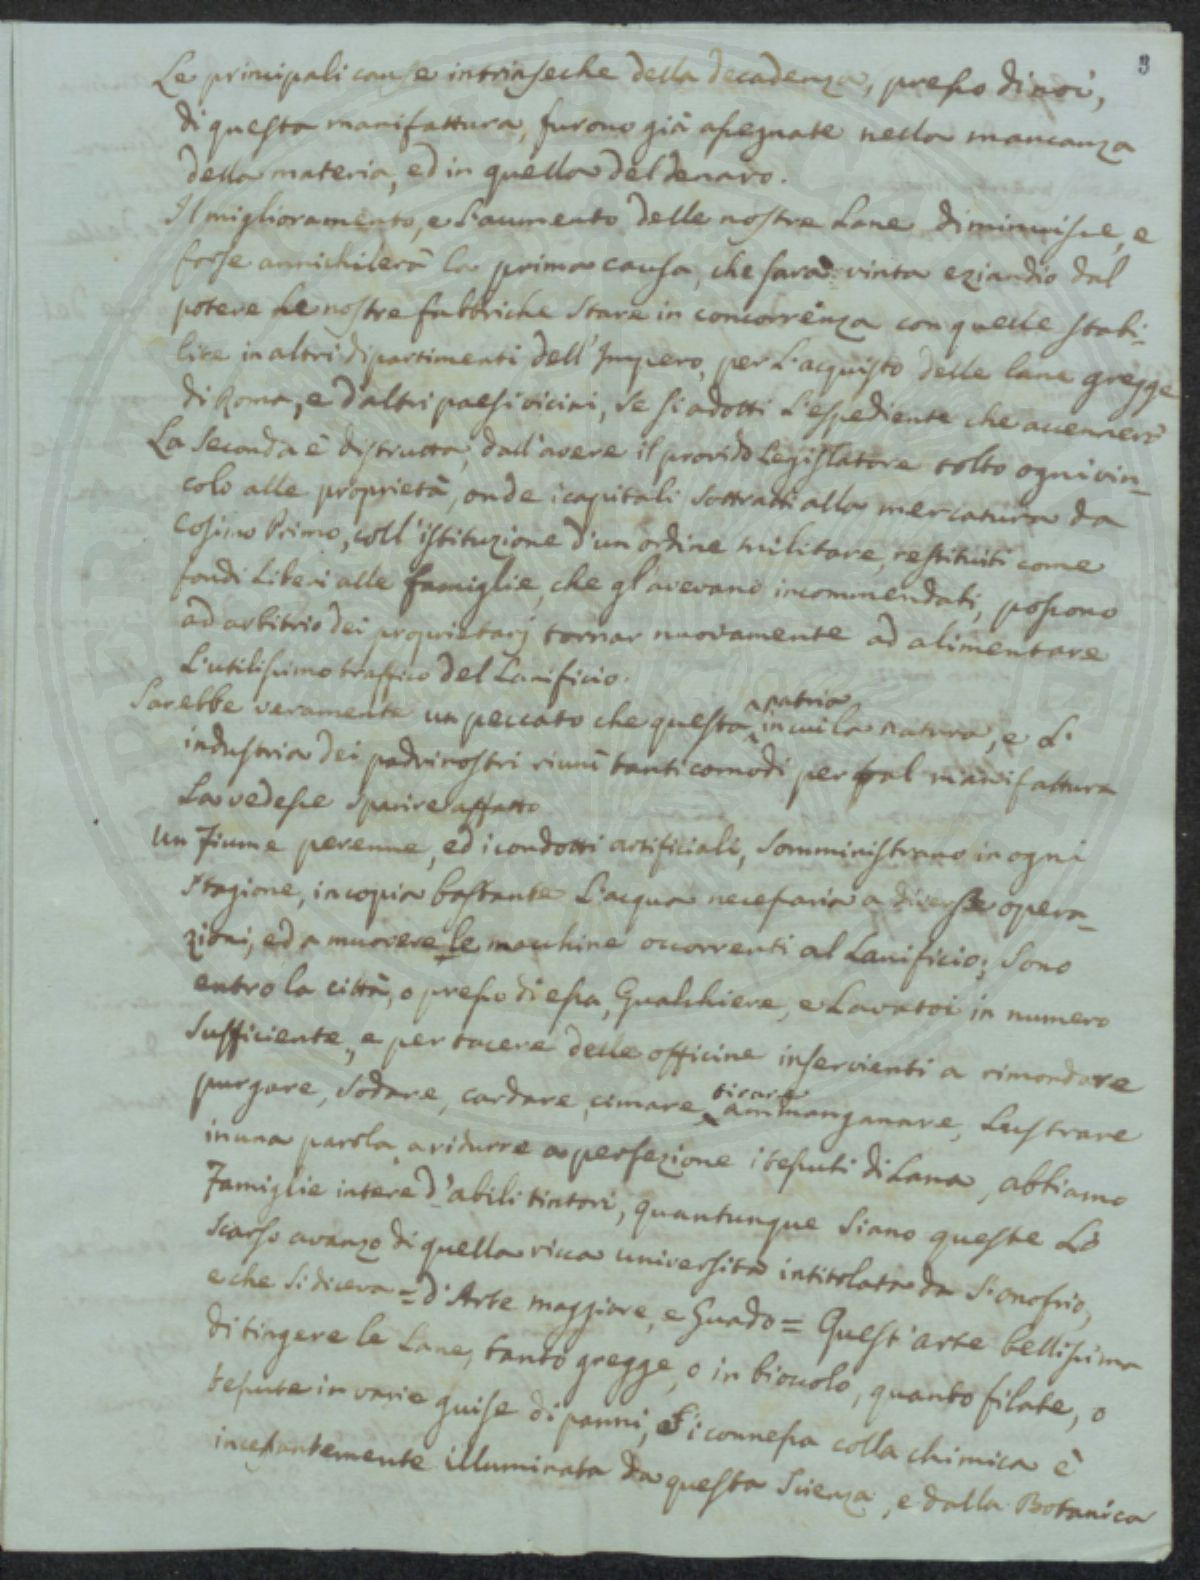 3
Le principali cause intrinseche della decadenza, presso di noi,
di questa manifattura, furono già assegnate nella mancanza
della materia, ed in quella del denaro.
Il miglioramento, e l'aumento delle nostre Lane diminuisce, e
forse annichilerà la prima causa, che sarà vinta eziandio dal
potere le nostre fabbriche stare in concorrenza con quelle stabi-
lite in altri dipartimenti dell'Impero, per l'acquisto delle lane gregge
di Roma, e d'altri paesi vicini, se si adotti l'espediente che accennerò
La seconda è distrutta, dall'avere il provido Legislatore tolto ogni vin-
colo alle proprietà, onde i capitali sottratti alla mercatura da
Cosimo Primo, coll'istituzione d'un ordine militare, restituiti come
fondi liberi alle famiglie, che gl'avevano incommendati, possono
ad arbitrio dei proprietarj tornar nuovamente ad alimentare
l'utilissimo traffico del Lanificio.
Sarebbe veramente un peccato che questa patria in cui la natura, e l'
industria dei padri nostri riunì tanti comodi per tal manifattura
la vedesse sparire affatto
Un Fiume perenne, ed i condotti artificiali, somministrano in ogni
stagione, in copia bastante l'acqua necessaria a diverse opera-
zioni, ed a muovere le macchine occorrenti al Lanificio; Sono
entro la città, o presso di essa, Gualchiere, e Lavatoi in numero
sufficiente, e per tacere delle officine inservienti a rimondare
purgare, sodare, cardare, cimare, tirare manganare, lustrare
in una parola a ridurre a perfezione i tessuti di Lana, abbiamo
Famiglie intere d'abili tintori, quantunque siano queste lo
scarso avanzo di quella ricca università intitolata da S. Onofrio,
e che si diceva = d'Arte maggiore, e Guado = Quest'arte bellissima
di tingere le Lane, tanto gregge, o in bioccolo, quanto filate, o
tessute in varie guise di panni, si connessa colla chimica è
incessantemente illuminata da questa Scienza, e dalla Botanica